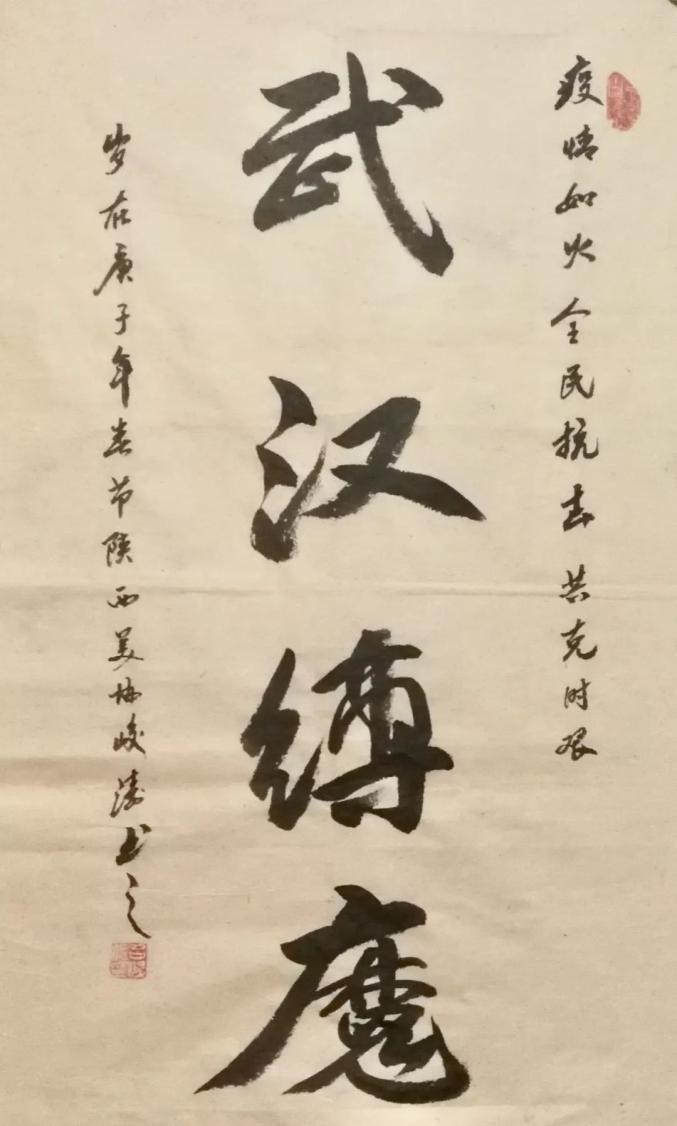 疫情如火全民抗击共克时艰
武汉缚魔
岁在庚子年春节陕西美协峻涛书之